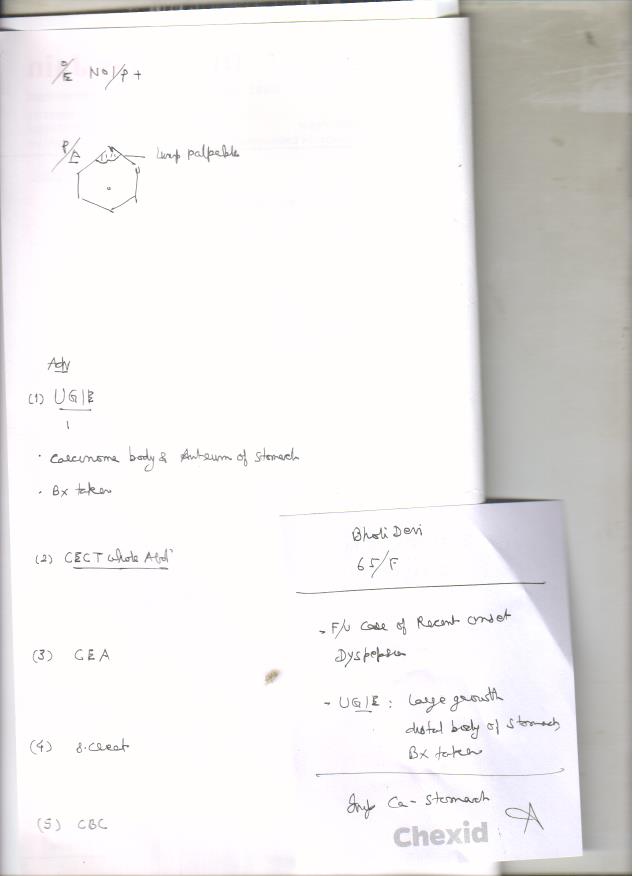 O/E No/P +
P/A
Lump palpable
Adv
(1) UGIE
• Carcinoma body & Antrum of Stomach
• Bx taken
(2) CECT whole Abd
(3) CEA
(4) S. Creat
(5) CBC
Bholi Devi
65/F
- F/U Case of Recent onset
Dyspepsia
- UGIE : Large growth
distal body of stomach
Bx taken
Imp Ca - Stomach
Chexid